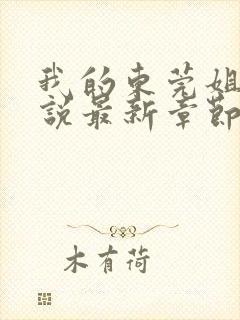 我的东莞姐
說最新章節
木有荷